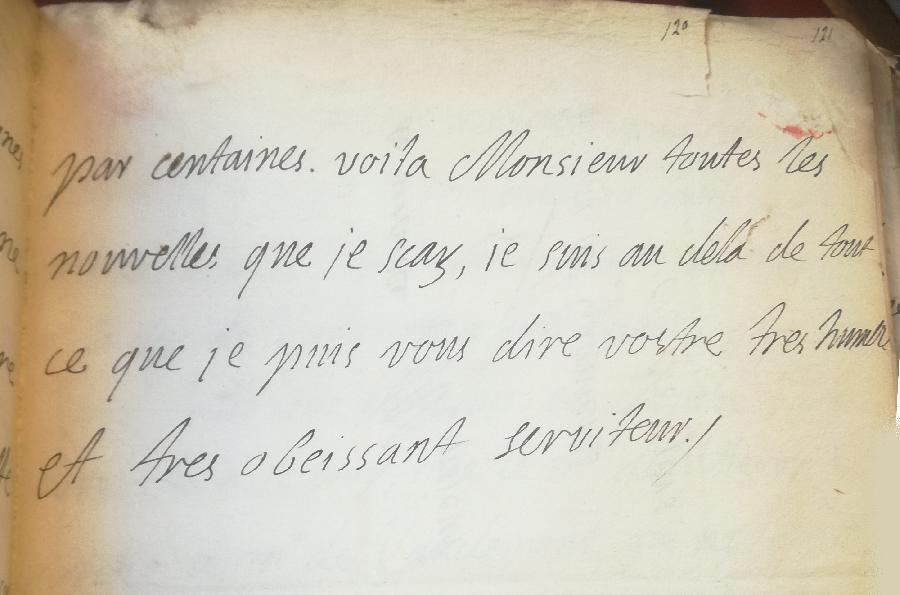 120 121
par centaines. voila Monsieur toutes les
nouvelles que je scay, je suis au dela de tout
ce que je puis vous dire vostre tres humble
et tres obeissant serviteur./